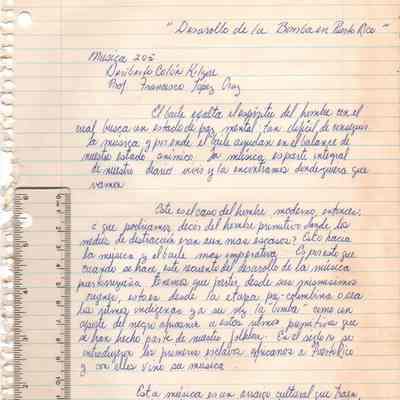 "Desarollo de la Bomba en Puerto Rico"
Musica 202
Heriberto Colón
Prof. Francisco López Cruz
El baile exalta el espíritu del hombre con el
cual busca un estado de paz mental, tan dificil de conseguir.
La musica y por ende el baile ayudan en el balance de
nuestro estado animico. La música es parte integral
de nuestro diario vivir y la encontramos dondequiera que
vamos.
Este es el caso del hombre moderno, entonces,
¿que podríamos decir del hombre primitivo donde los
medios de distracción eran aun mas escasos? Esto hacia
la musica y el baile mas imperativo. Es por esto que
cuando se hace este recuento del desarollo de la música
puertorriqueña tenemos que partir desde sus mismisimas
raices, esto es desde la etapa pre-colombina o sea
los ritmos indigenas ya su vez la "bomba" como un
aporte del negro africano a estos ritmos primitivos que
se han hecho parte de nuestro folklore. En el siglo
introdujeron los primeros esclavos Africanos a Puerto Rico
y con ellos vino su musica.
Esta música es un arraigo cultural que traen,